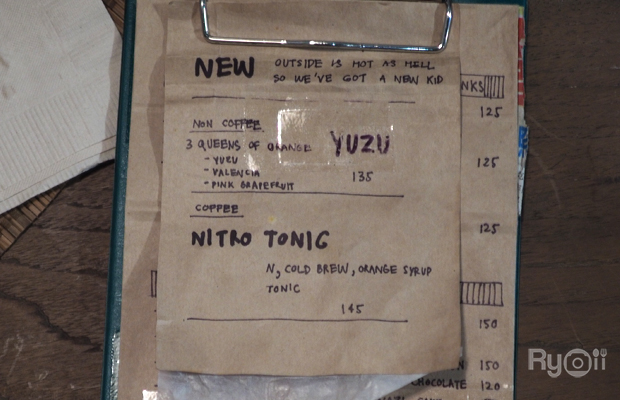 NEW
OUTSIDE IS HOT AS HELL
SO WE'VE GOT A NEW KID
NON COFFEE
3 QUEENS OF ORANGE YUZU
- YUZU
- VALENCIA 135
- PINK GRAPEFRUIT
COFFEE
NITRO TONIC
N, COLD BREW, ORANGE SYRUP
TONIC
145
NKS
125
125
125
150
150
CHOCOLATE 120
Ryoii